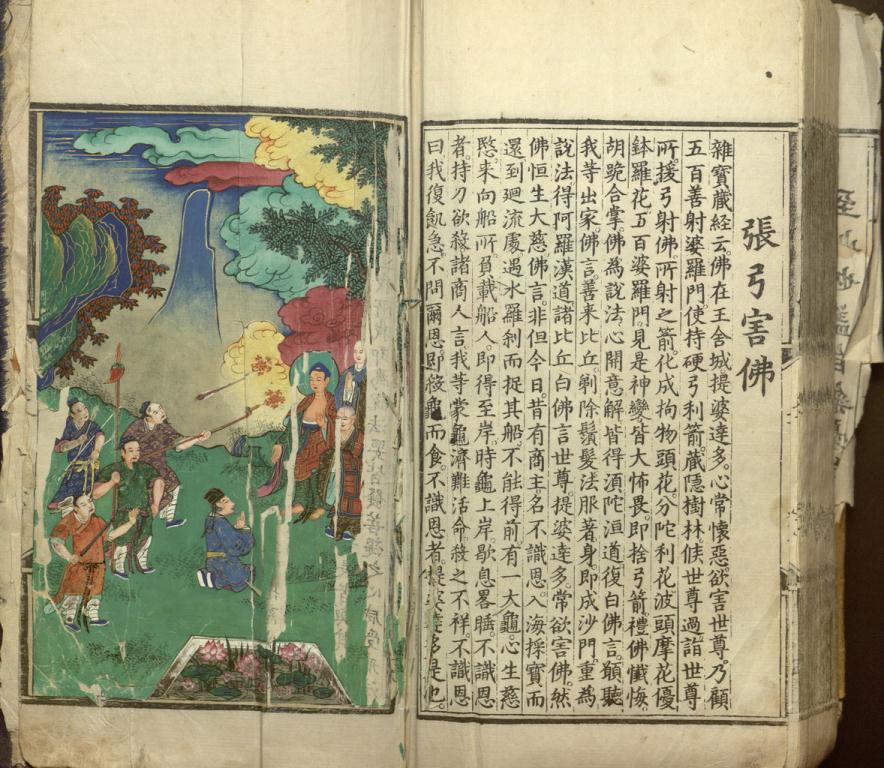 張弓害佛
雜寶藏經云。佛在王舍城提婆達多。心常懷惡。欲害世尊。乃顧
五百善射婆羅門。使持硬弓利箭。藏隱樹林。候世尊過。詣世尊
所。援弓射佛。所射之箭。化成拘物頭花。分陀利花。波頭摩花。優
鉢羅花。五百婆羅門。見是神變。皆大怖畏。即捨弓箭。禮佛懺悔。
胡跪合掌。佛為說法。心開意解。皆得湏陀洹道。復白佛言。願聽
我等出家。佛言。善來比丘。剃除鬚髮。法服著身。即成沙門。重為
說法。得阿羅漢道。諸比丘白佛言世尊。提婆達多。常欲害佛。然
佛恒生大慈。佛言。非但今日。昔有商主。名不識恩。入海採寶而
還。到迴流處。遇水羅剎而捉其船。不能得前。有一大龜。心生慈
愍。来向船所。負載船人。即得至岸。時龜上岸。歇息畧睡。不識恩
者。持刀欲殺。諸商人言。我等蒙龜濟難活命。殺之不祥。不識恩
曰。我復飢急。不問爾恩。即殺龜而食。不識恩者。提婆達多是也。